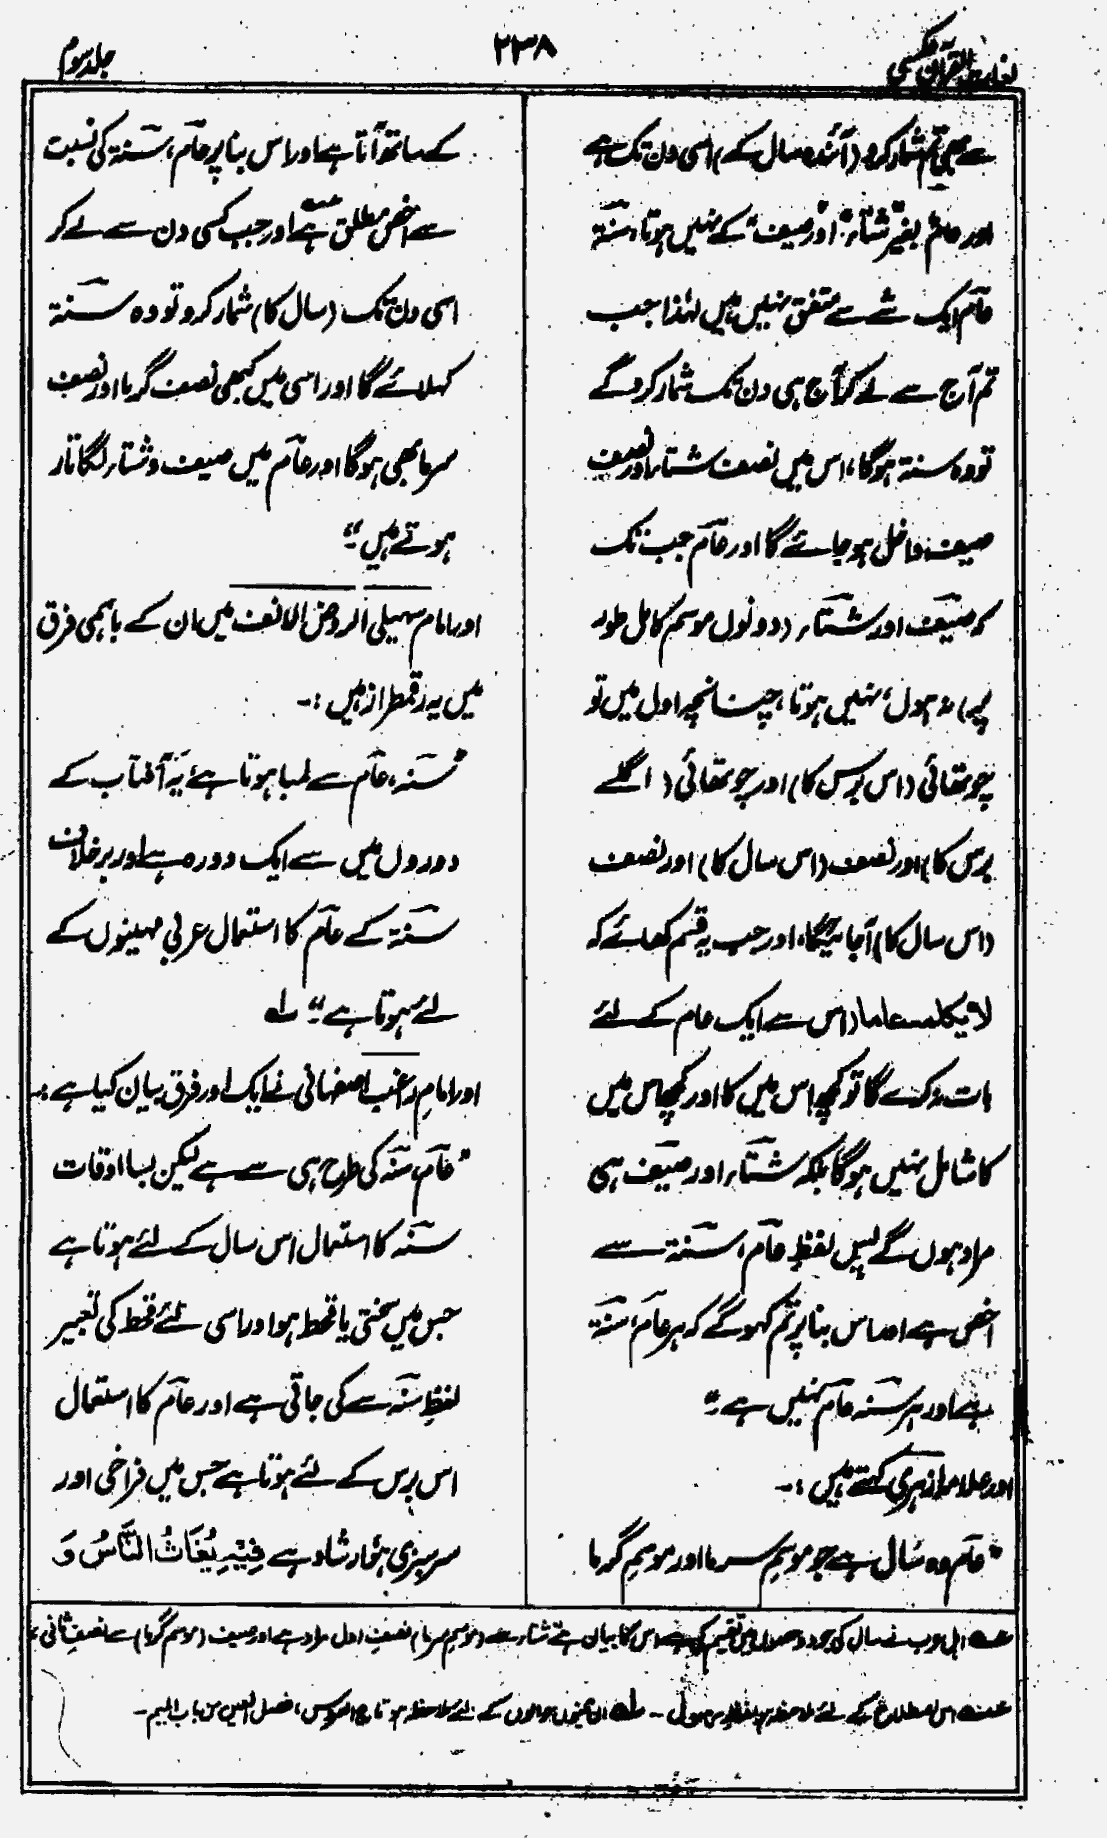 لغات القرآن عکسی
۲۳۸
جلد سوم
سے بھی تم شمار کرو (آئندہ سال کے) اسی دن تک ہے
اور عام بغیر "شتاء" اور "صیف" کے نہیں ہوتا، سنۃ
عام ایک شے سے متفق نہیں ہیں لہٰذا جب
تم آج سے لے کر آج ہی دن تک شمار کرو گے
تو وہ سنۃ ہوگا، اس میں نصف شتاء اور نصف
صیف داخل ہو جائے گا اور عام جب تک
کہ صیف اور شتاء (دونوں موسم کامل طور
پر) نہ ہوں، نہیں ہوتا، چنانچہ اول میں تو
چوتھائی (اس برس کا) اور چوتھائی (اگلے
برس کا) اور نصف (اس سال کا) اور نصف
(اس سال کا) آجائیگا، اور جب یہ قسم کھائے کہ
لا یکلمہ عاما (اس سے ایک عام کے لئے
بات نہ کرے گا تو کچھ اس میں کا اور کچھ اس میں
کا شامل نہیں ہوگا بلکہ شتاء اور صیف ہی
مراد ہوں گے پس لفظِ عام، سنۃ سے
اخص ہے اور اس بنا پر تم کہو گے کہ ہر عام، سنۃ
ہے اور ہر سنہ عام نہیں ہے"۔
اور علامہ ازہری کہتے ہیں :۔
"عام وہ سال ہے جو موسمِ سرما اور موسمِ گرما
کے ساتھ آتا ہے اور اس بنا پر عام، سنۃ کی نسبت
سے اخص مطلق ہے اور جب کسی دن سے لے کر
اسی دن تک (سال کا) شمار کرو تو وہ سنۃ
کہلائے گا اور اسی میں کبھی نصف گرما اور نصف
سرما بھی ہوگا اور عام میں صیف و شتاء لگاتار
ہوتے ہیں"۔
اور امام سہیلی الروض الانف میں ان کے باہمی فرق
میں یہ رقمطراز ہیں :۔
"سنہ، عام سے لمبا ہوتا ہے یہ آفتاب کے
دوروں میں سے ایک دورہ ہے اور برخلاف
سنۃ کے عام کا استعمال عربی مہینوں کے
لئے ہوتا ہے"۔ لہ
اور امام راغب اصفہانی نے ایک اور فرق بیان کیا ہے :۔
"عام، سنہ کی طرح ہی سے ہے لیکن بسا اوقات
سنہ کا استعمال اس سال کے لئے ہوتا ہے
جس میں سختی یا قحط ہو اور اسی لئے قحط کی تعبیر
لفظِ سنہ سے کی جاتی ہے اور عام کا استعمال
اس برس کے لئے ہوتا ہے جس میں فراخی اور
سرسبزی ہو، ارشاد ہے فِیْہِ یُغَاثُ النَّاسُ وَ
عہ اہل عرب نے سال کی جو دو حصوں میں تقسیم کی ہے اس کا بیان ہے شتاء سے (موسم سرما) نصف اول مراد ہے اور صیف (موسم گرما) سے نصف ثانی
عہ اس اصطلاح کے لئے ملاحظہ ہو لفظ رسول ۔ لہ ان تینوں حوالوں کے لئے ملاحظہ ہو تاج العروس، فصل العین من باب المیم۔